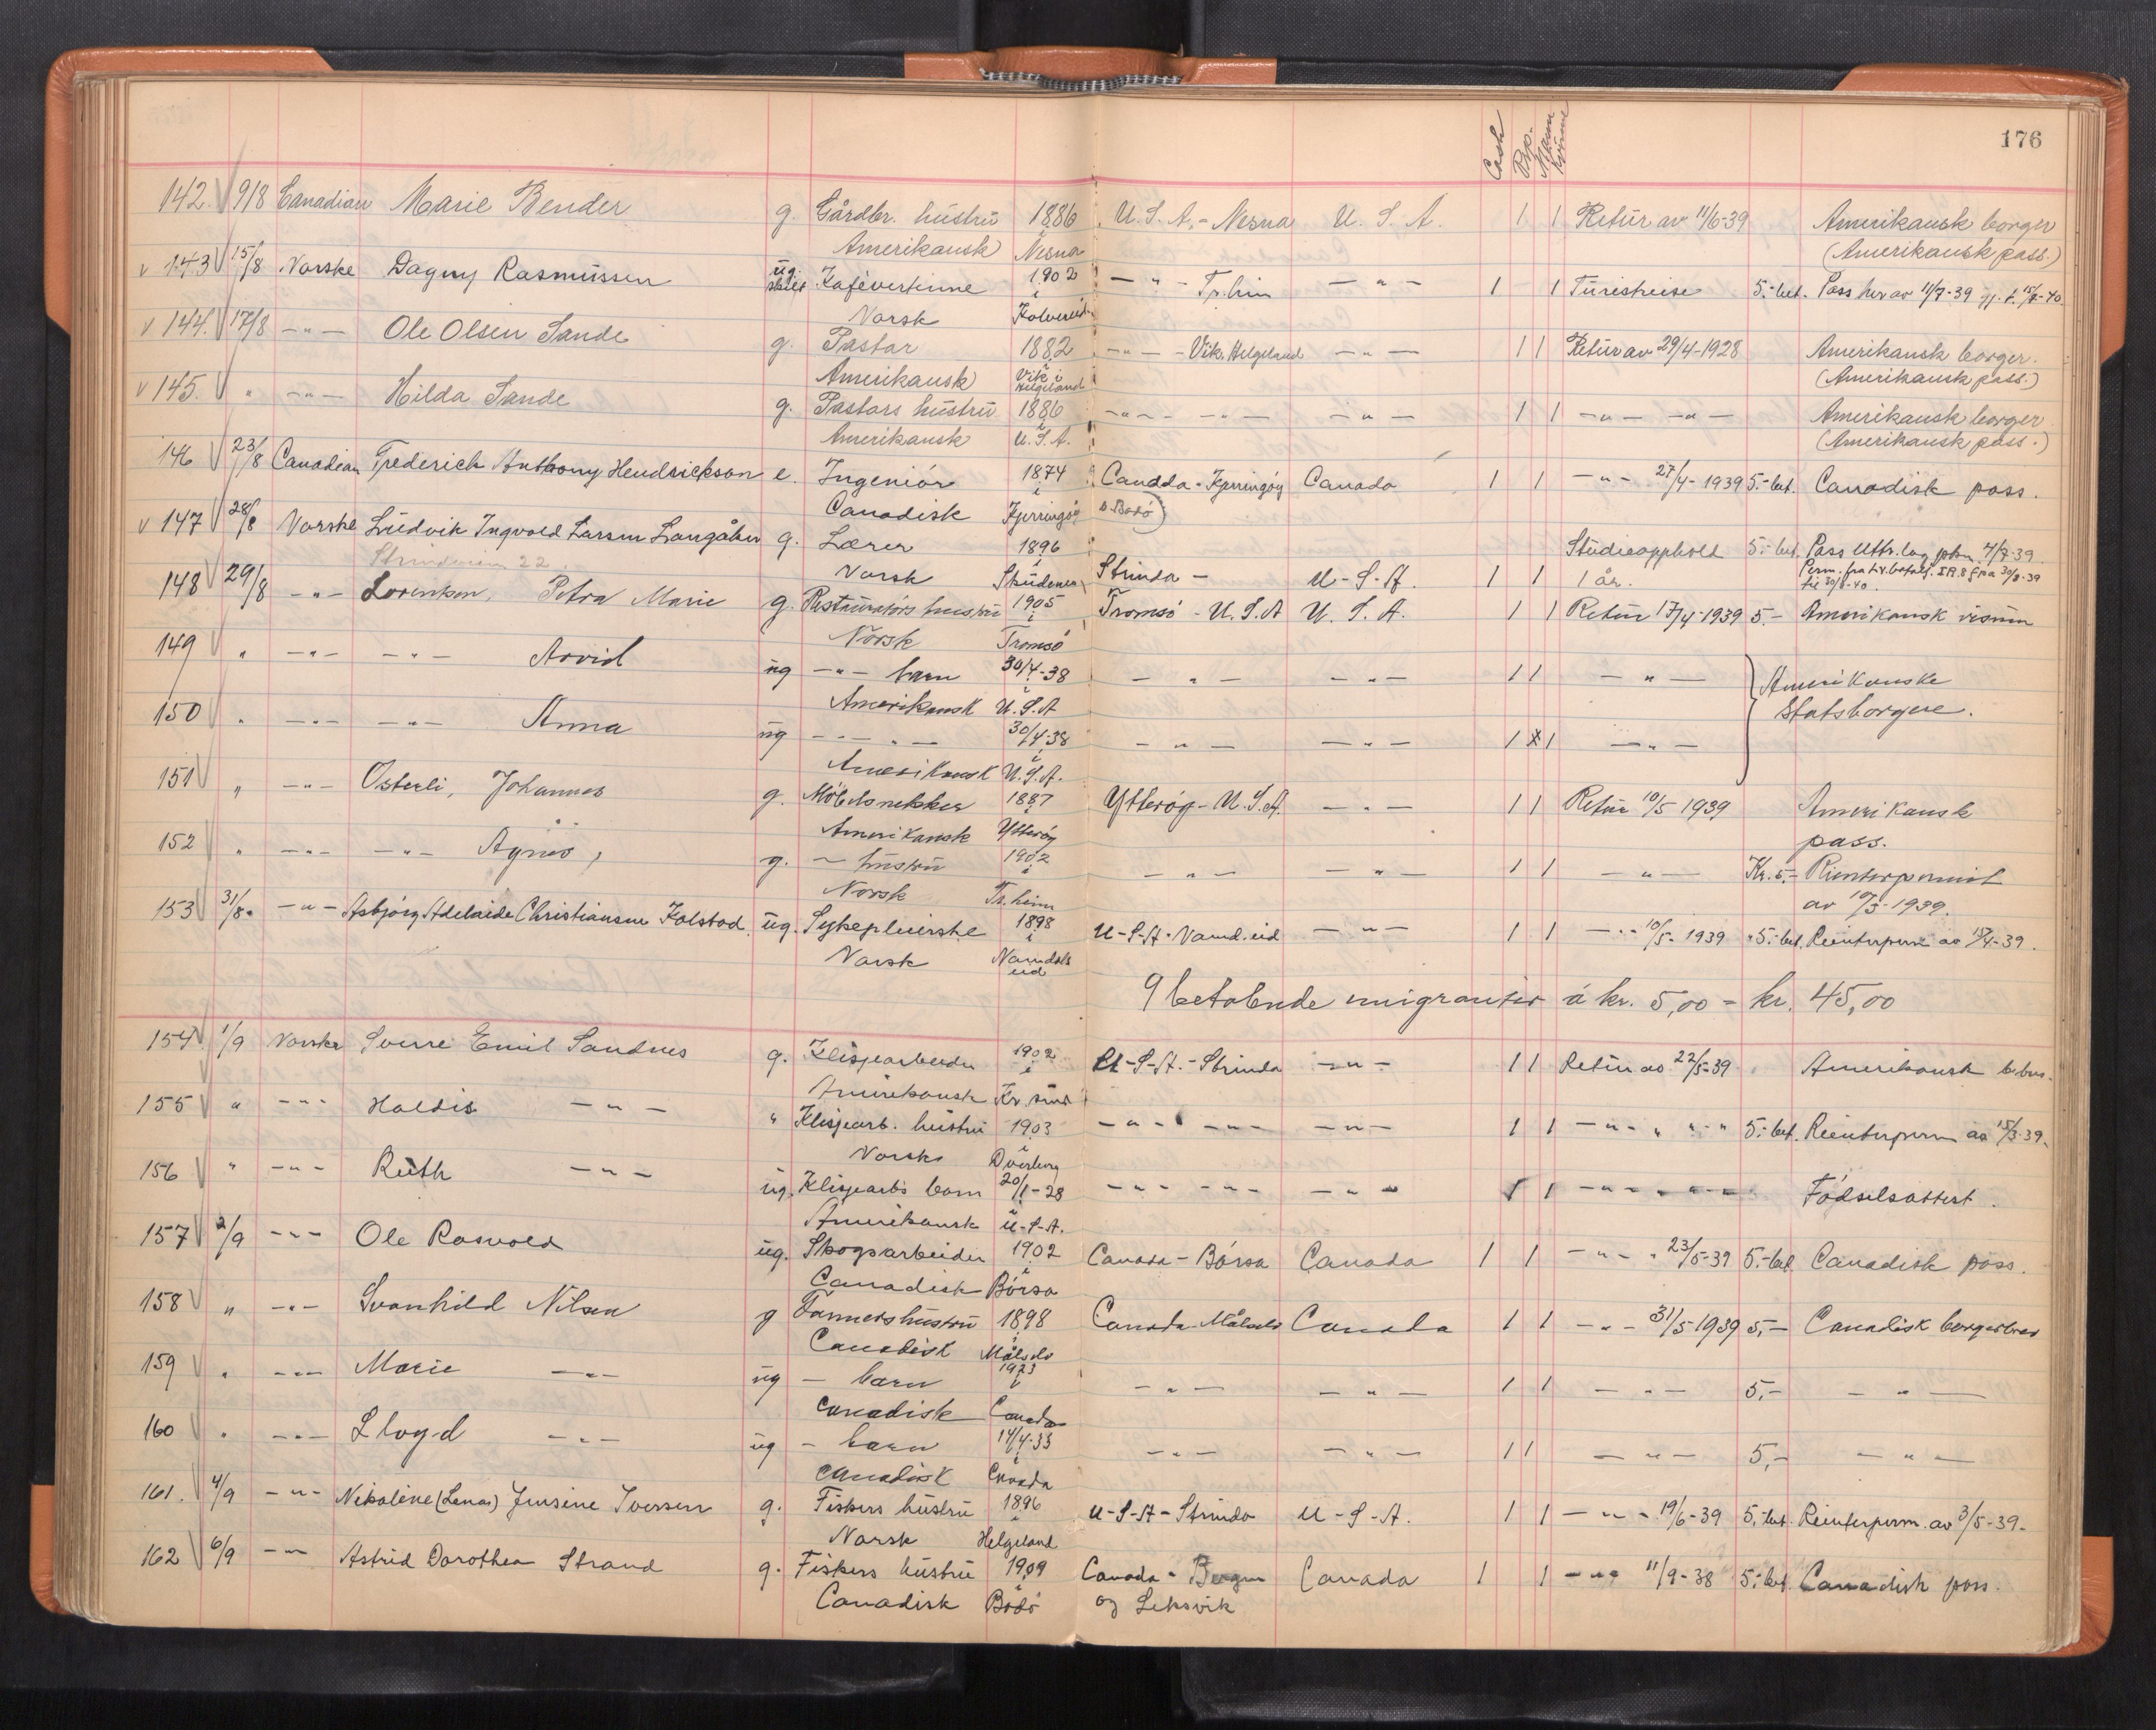 Cash Psp. Mann Kvinne 176
142. 9/8 Canadian Marie Bender g. Gårdbr. hustru 1886 U.S.A. - Nesna U.S.A. 1 1 Retur av 11/6-39 Amerikansk borger
Amerikansk i Nesna (Amerikansk pass.)
v 143 15/8 Norske Dagny Rasmussen ug. Kafévertinne 1902 — " — Tr.heim — " — 1 1 Turistreise 5.- bet. Pass her av 11/7-39
Norsk i Kolvereid
v 144. 17/8 — " — Ole Olsen Sande g. Pastor 1882 — " — - Vik. Helgeland — " — 1 1 Retur av 29/4-1928 Amerikansk borger.
Amerikansk i Vik i Helgeland (Amerikansk pass.)
v 145. " — " — Hilda Sande g. Pastors hustru 1886 — " — — " — — " — 1 1 — " — — " — Amerikansk borger
Amerikansk i U.S.A. (Amerikansk pass.)
146 23/8 Canadian Frederich Anthony Hendrickson e. Ingeniør 1874 Canada - Kjerringøy Canada 1 1 — " — 27/4-1939 5.- bet. Canadisk pass.
Canadisk i Kjerringøy Bodö
v 147 28/8 Norske Ludvik Ingvald Larsen Langåker g. Lærer 1896 Studieopphold 5.- bet. Pass Uttr.lag pktm. 4/7-39.
Norsk i Skudenes Strinda - U-S-A. 1 1 1 år.
148 29/8 — " — Lorentzen, Petra Marie g. Restauratørs hustru 1905 Tromsö - U.S.A U.S.A. 1 1 Retur 17/4-1939 5.- Amerikansk visum
Norsk i Tromsö
149 " — " — — " — Arvid ug — " — barn 30/4-38 — " — — " — 1 1 — " — Amerikanske
Amerikansk i U.S.A Statsborgere.
150 " — " — — " — Anna ug — " — 30/4-38 — " — — " — 1 x 1 — " —
Amerikansk i U.S.A.
151 " — " — Osterli, Johannes g. Möbelsnekker 1887 Ytteröy - U.S.A. — " — 1 1 Retur 10/5 1939 Amerikansk
Amerikansk i Ytteröy pass.
152 " — " — — " — Agnes, g. — hustru 1902 — " — — " — 1 1 — " — Kr. 5.-
Norsk i Tr.heim av 10/3-1939.
153 31/8. — " — Asbjörg Adelaide Christiansen Kolstad. ug. Sykepleierske 1898 U-S-A - Namd.eid — " — 1 1 — " — 10/5-1939 5.- bet. Reenterperm av 15/4-39.
Norsk i Namdalseid
9 betalende emigranter á kr. 5,00 = kr. 45,00
154 1/9 Norske Sverre Emil Sandnes g. Klisjearbeider 1902 U-S-A. - Strinda — " — 1 1 Retur av 22/5-39 Amerikansk
Amerikansk i Kr.sund
155 " — " — Haldis — " — " Klisjearb. hustru 1903 — " — — " — — " — 1 1 — " — " " " 5.- bet. Reenterperm av 15/3-39.
Norsk i Dverberg
156 " — " — Ruth — " — ug. Klisjearb's barn 20/1-28 — " — — " — — " — 1 1 — " — Födselsattest.
Amerikansk i U-S-A.
157 2/9 — " — Ole Rosvold ug. Skogsarbeider 1902 Canada - Börsa Canada 1 1 — " — 23/5-39 5.- bet Canadisk pass.
Canadisk i Börsa
158 " — " — Svanhild Nilsen g Farmershustru 1898 Canada-Målselv Canada 1 1 — " — 31/5-1939 5,- Canadisk borgerbrev
Canadisk i Målselv
159 " — " — Marie — " — ug — barn 1923 — " — — " — 1 1 — " — 5,- — " —
Canadisk i Canada
160 " — " — Lloyd — " — ug — barn 14/4-33 — " — — " — 1 1 — " — 5,- — " —
Canadisk i Canada
161. 4/9 — " — Nikoline (Lena) Jensine Iversen g. Fiskers hustru 1896 U-S-A - Strinda U-S-A. 1 1 — " — 19/6-39 5,- bet. Reenterperm. av 3/5-39.
Norsk i Helgeland
162 6/9 — " — Astrid Dorothea Strand g. Fiskers hustru 1909 Canada - Bergen Canada 1 1 — " — 11/9-38 5.- bet. Canadisk pass.
Canadisk i Bodö og Leksvik